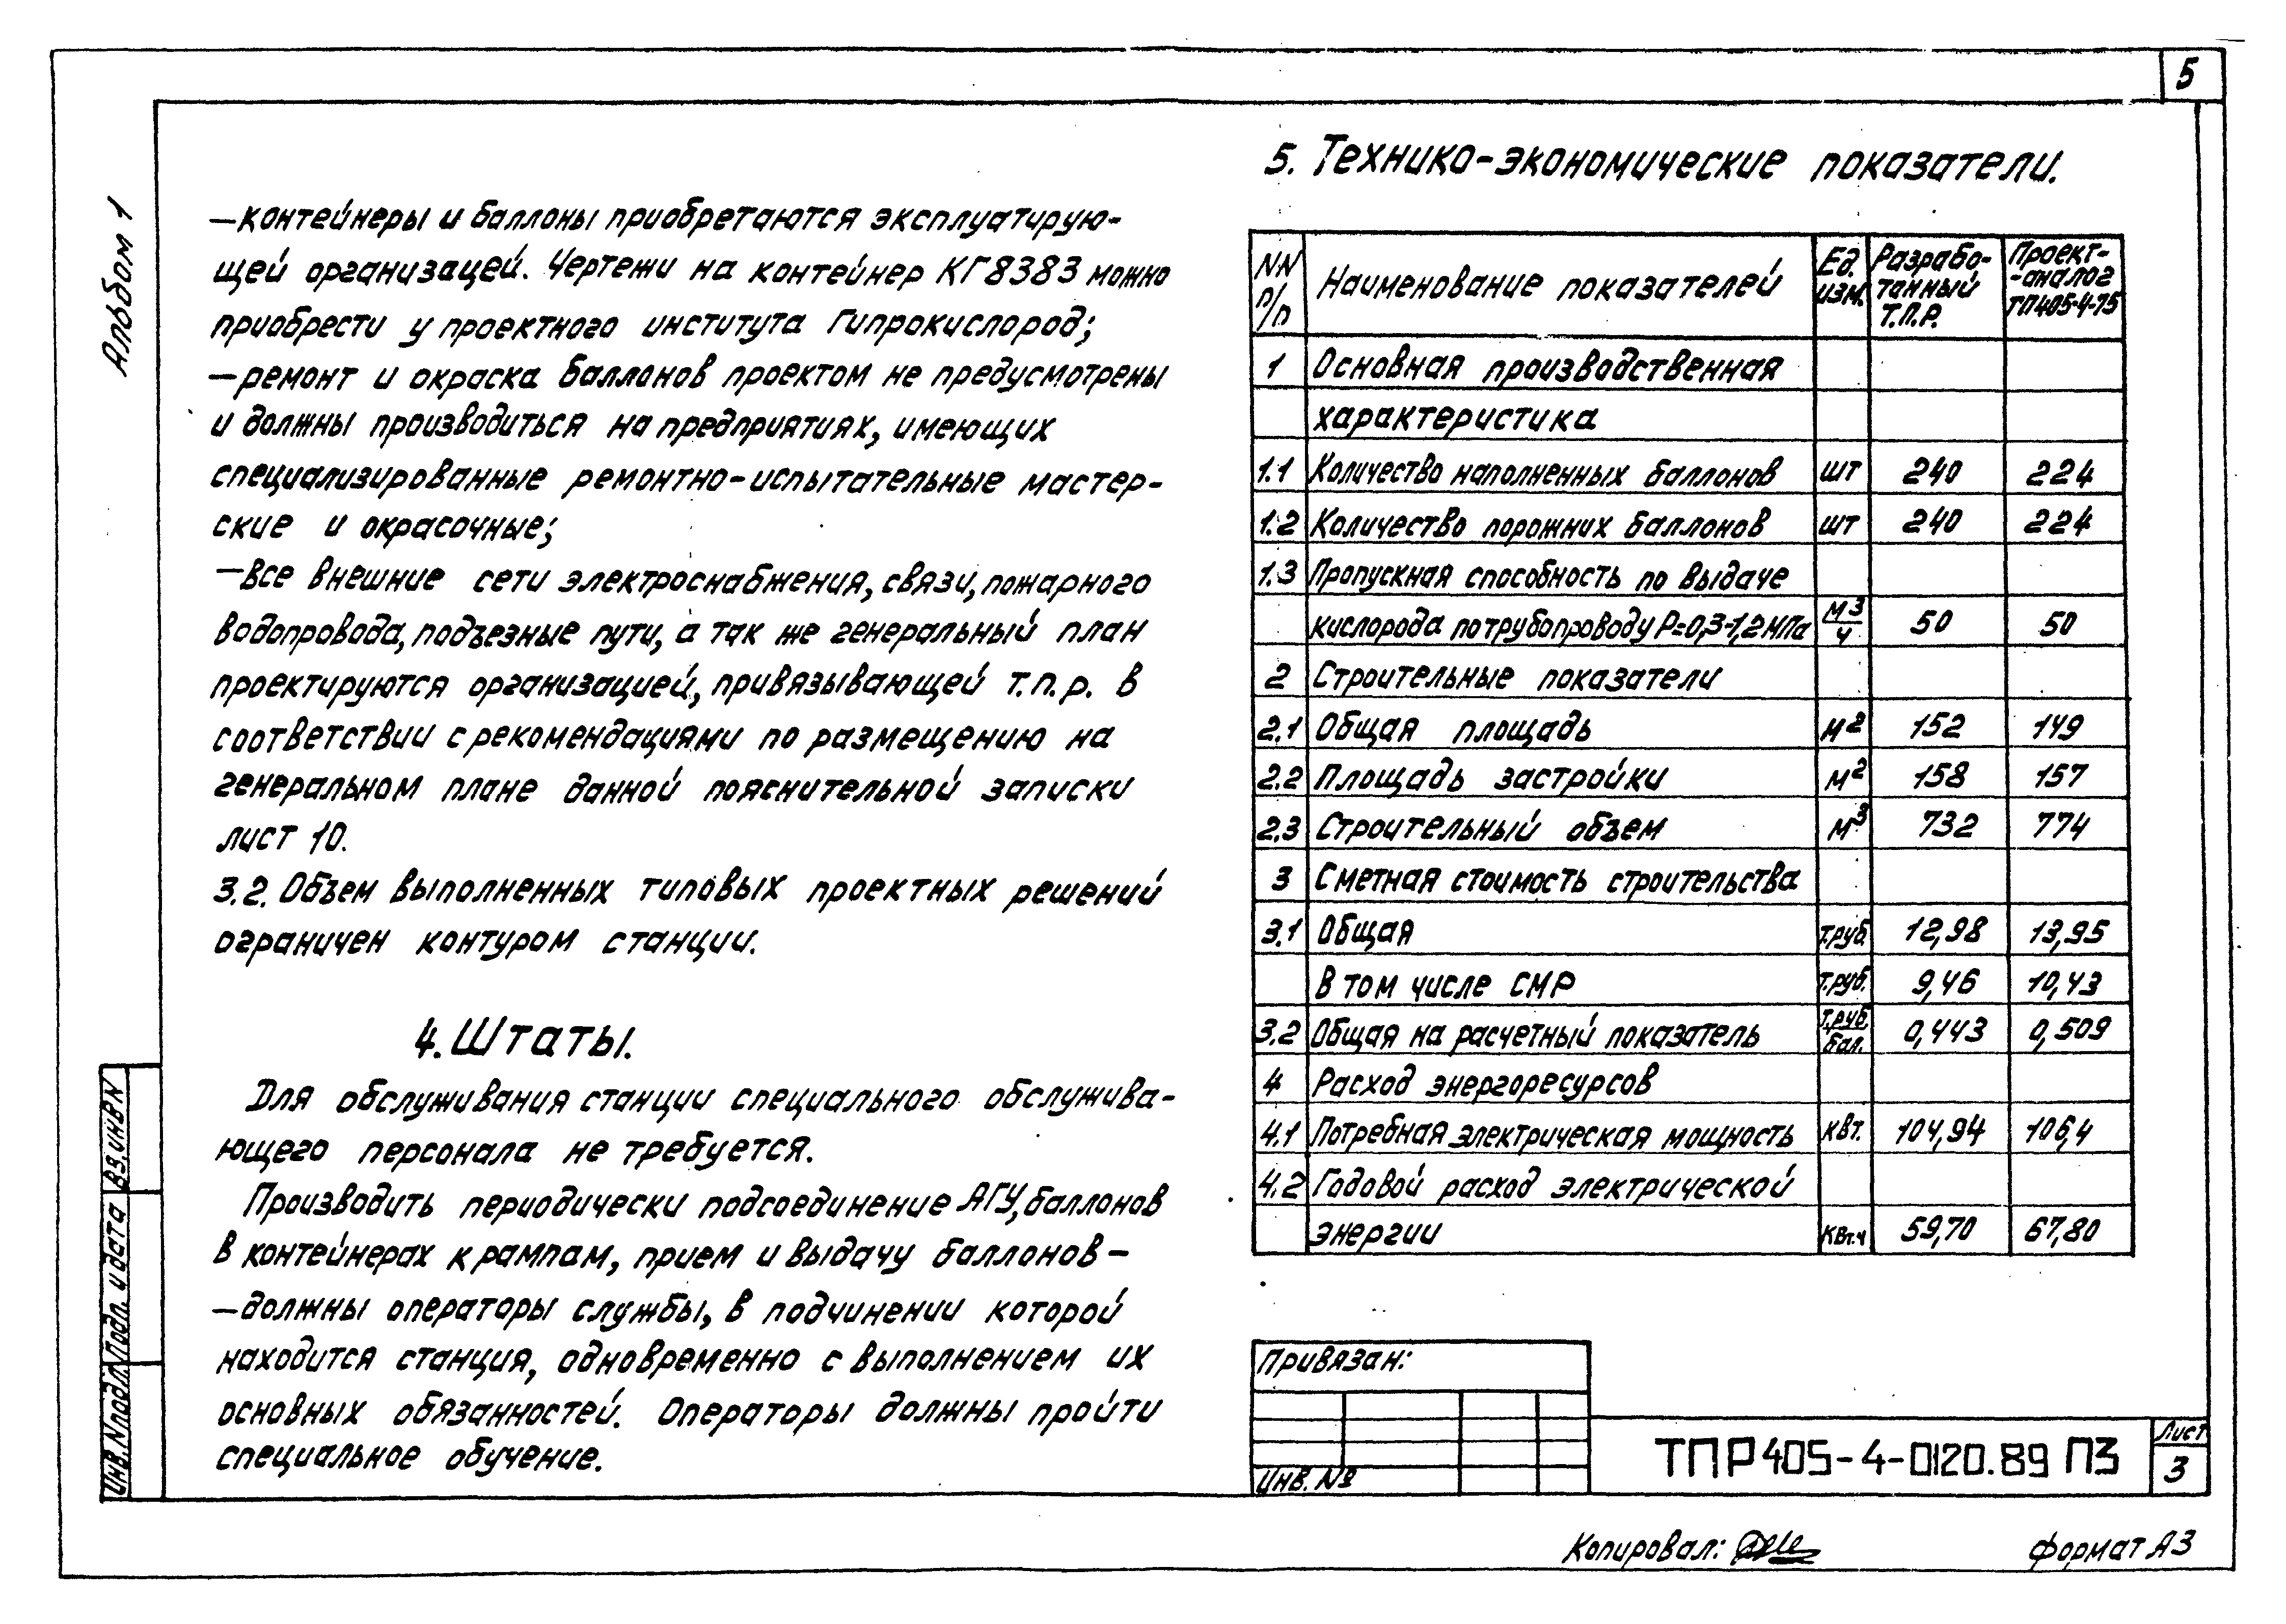 5
Альбом 1
—контейнеры и баллоны приобретаются эксплуатирую-
щей организацей. Чертежи на контейнер КГ8383 можно
приобрести у проектного института Гипрокислород;
—ремонт и окраска баллонов проектом не предусмотрены
и должны производиться на предприятиях, имеющих
специализированные ремонтно-испытательные мастер-
ские и окрасочные;
—все внешние сети электроснабжения, связи, пожарного
водопровода, подъезные пути, а так же генеральный план
проектируются организацией, привязывающей т.п.р. в
соответствии с рекомендациями по размещению на
генеральном плане данной пояснительной записки
лист 10.
3.2. Объем выполненных типовых проектных решений
ограничен контуром станции.
4. Штаты.
Для обслуживания станции специального обслужива-
ющего персонала не требуется.
Производить периодически подсоединение АГУ, баллонов
в контейнерах к рампам, прием и выдачу баллонов—
—должны операторы службы, в подчинении которой
находится станция, одновременно с выполнением их
основных обязанностей. Операторы должны пройти
специальное обучение.
5. Технико-экономические показатели.
NN п/п Наименование показателей Ед. изм. Разрабо-танный Т.П.Р. Проект--аналог ТП405-4-75
1 Основная производственная
характеристика
1.1 Количество наполненных баллонов шт 240 224
1.2 Количество порожних баллонов шт 240 224
1.3 Пропускная способность по выдаче
кислорода по трубопроводу Р=0,3-1,2 МПа м3/ч 50 50
2 Строительные показатели
2.1 Общая площадь м2 152 149
2.2 Площадь застройки м2 158 157
2.3 Строительный объем м3 732 774
3 Сметная стоимость строительства
3.1 Общая т.руб. 12,98 13,95
В том числе СМР т.руб. 9,46 10,43
3.2 Общая на расчетный показатель т.руб/бал. 0,443 0,509
4 Расход энергоресурсов
4.1 Потребная электрическая мощность квт. 104,94 106,4
4.2 Годовой расход электрической
энергии квт.ч 59,70 67,80
Привязан:
Инв. №
ТПР 405-4-0120.89 ПЗ
Лист
3
Инв.Nподл. Подп. и дата Вз.инв N
Копировал:
формат А3